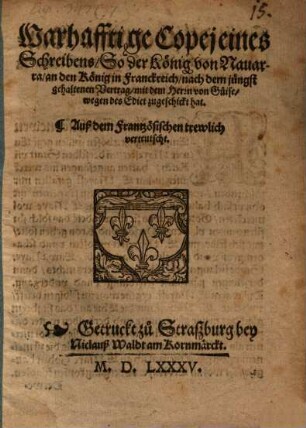 15.
Warhafftige Copej eines
Schreibens/ So der König von Nauar-
ra/an den König in Franckreich/nach dem jüngst
gehaltenen Vertrag/mit dem Herin von Güise/
wegen des Edict zugeschickt hat.
¶ Auß dem Frantzösischen trewlich
verteutscht.
Getruckt zů Straßburg bey
Niclauß Waldt am Kornmärckt.
M. D. LXXXV.